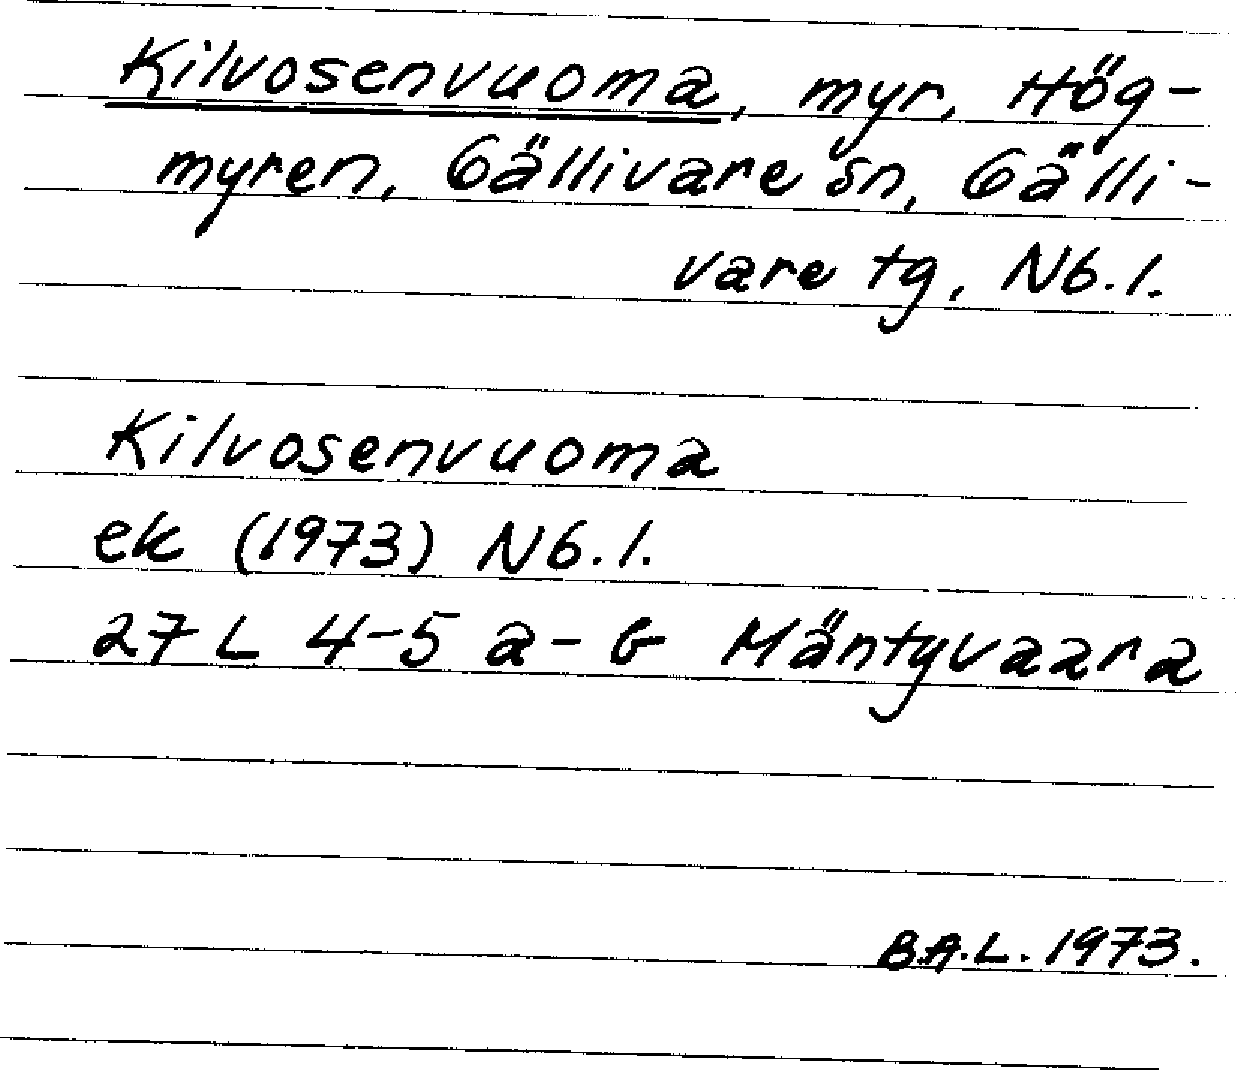 Kilvosenvuoma, myr, Hög-
myren, Gällivare sn, Gälli-
vare tg, Nb.l.
Kilvosenvuoma
ek (1973) Nb.l.
27 L 4-5 a-b Mäntyvaara
B.A.L. 1973.